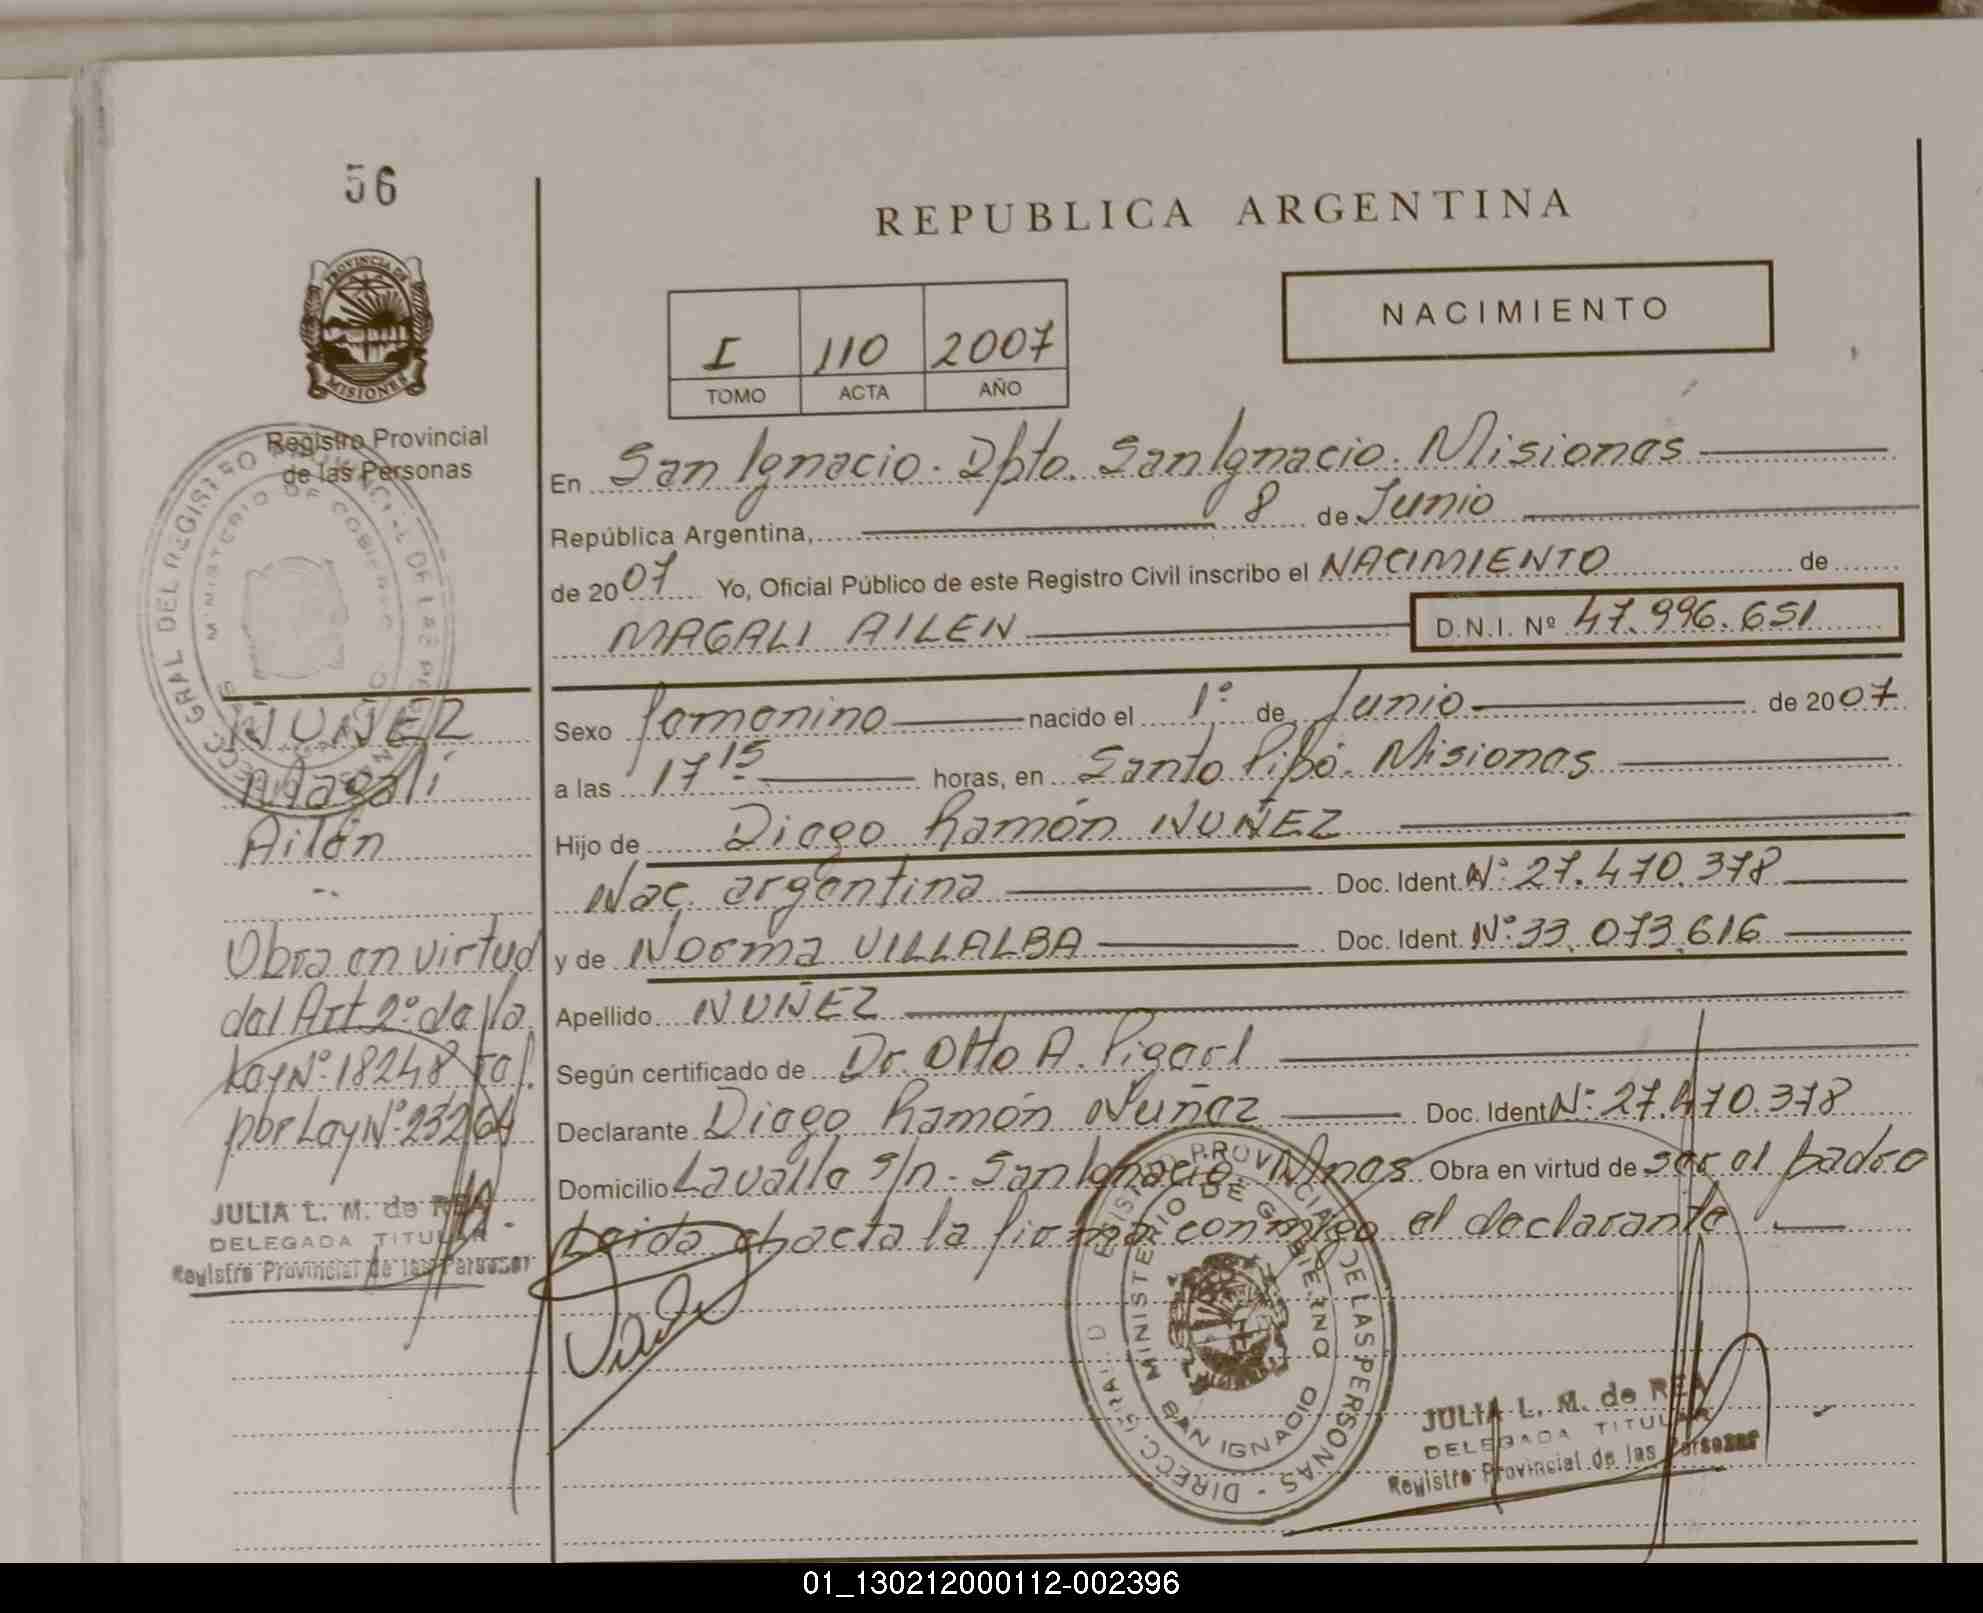 56
REPUBLICA ARGENTINA
PROVINCIA DE
MISIONES
NACIMIENTO
I 110 2007
TOMO ACTA AÑO
Registro Provincial
de las Personas
En San Ignacio. Dpto. San Ignacio. Misiones
República Argentina, 8 de Junio
de 2007 Yo, Oficial Público de este Registro Civil inscribo el NACIMIENTO de
MAGALI AILEN D.N.I. Nº 47.996.651
Sexo femenino nacido el 1º de Junio de 2007
a las 17 15 horas, en Santo Pipó. Misiones
Hijo de Diego Ramón NUÑEZ
Nac. argentina Doc. Ident. Nº 27.470.378
y de Norma VILLALBA Doc. Ident. Nº 33.073.616
Apellido NUÑEZ
Según certificado de Dr. Otto A.
Declarante Diego Ramón Nuñez Doc. Ident. Nº 27.470.378
Domicilio Lavalle s/n - San Ignacio Mnes. Obra en virtud de ser el padre
Leida el acta la firma conmigo el declarante
NUÑEZ
Magalí
Ailén
Obra en virtud
del Art. 2º de la
Ley Nº 18248
por Ley Nº 23264
JULIA L. M. de REA
DELEGADA TITULAR
Registro Provincial de las Personas
DIRECC. GRAL DEL REGISTRO PROVINCIAL DE LAS PERSONAS
MINISTERIO DE GOBIERNO
SAN IGNACIO
JULIA L. M. de REA
DELEGADA TITULAR
Registro Provincial de las Personas
01_130212000112-002396